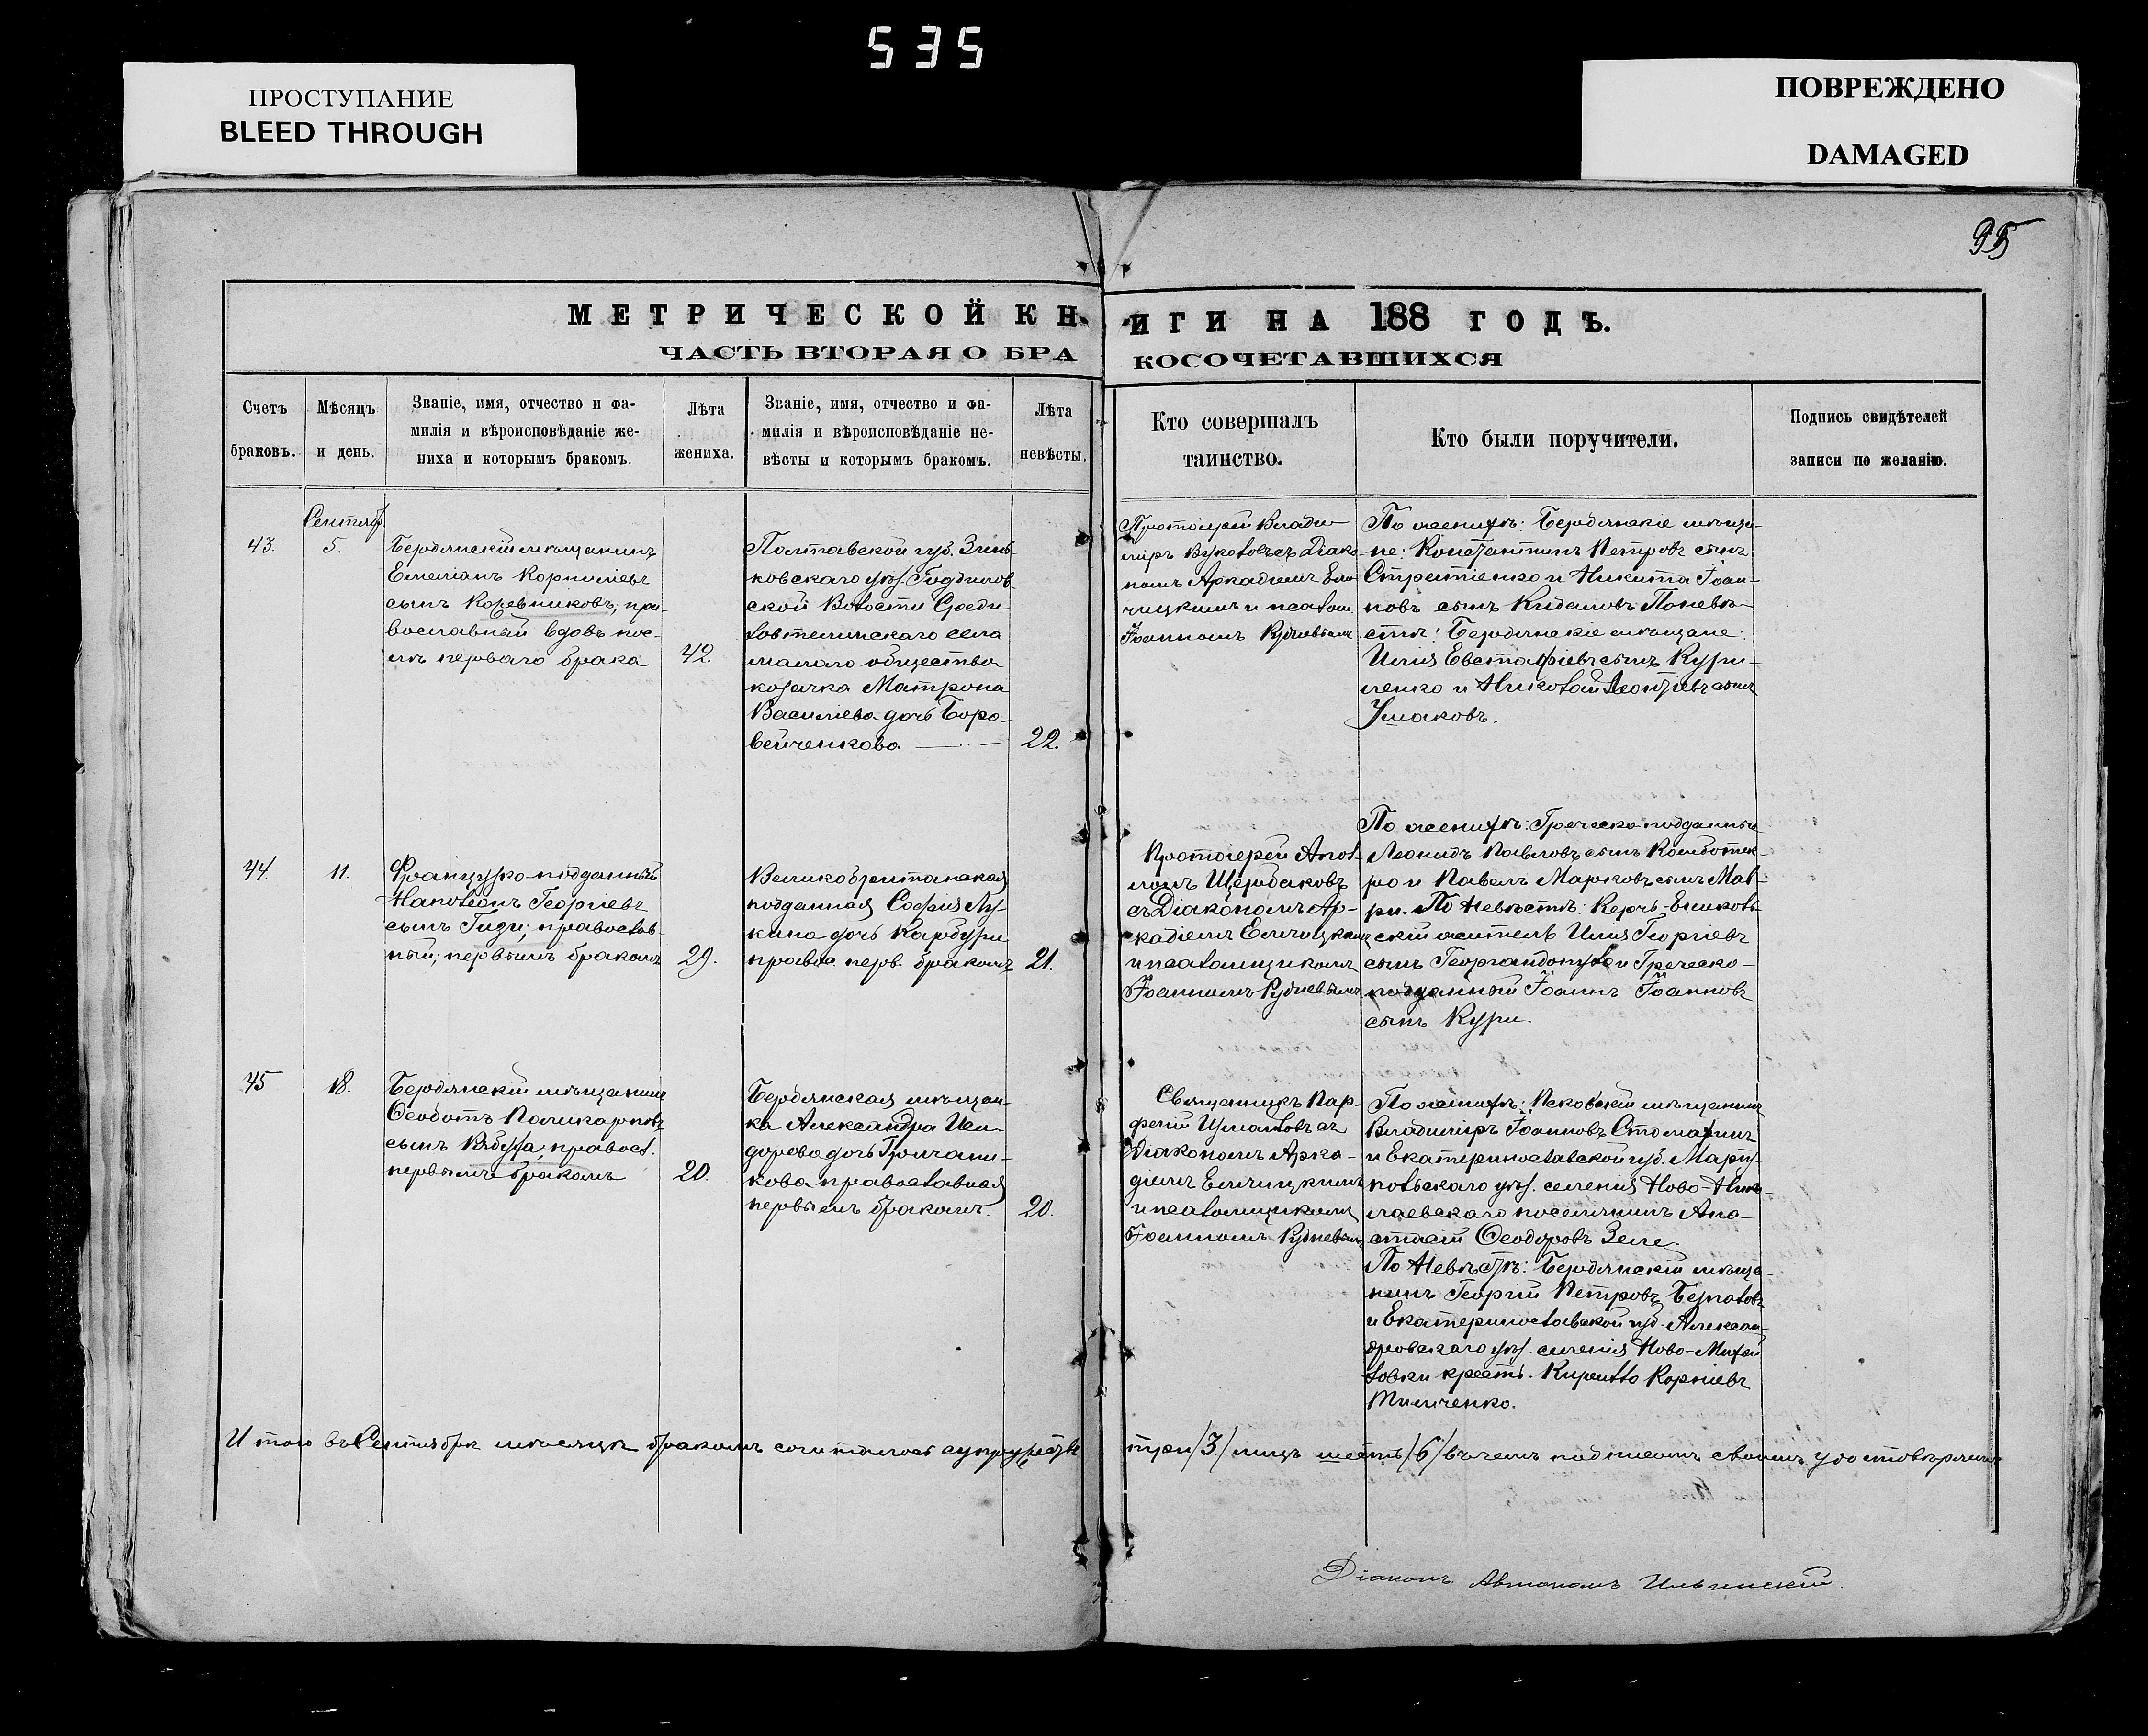 535
ПРОСТУПАНИЕ
BLEED THROUGH
ПОВРЕЖДЕНО
DAMAGED
95
МЕТРИЧЕСКОЙ КНИГИ НА 188 ГОДЪ.
ЧАСТЬ ВТОРАЯ О БРАКОСОЧЕТАВШИХСЯ
Счетъ
браковъ.
Мѣсяцъ
и день.
Званіе, имя, отчество и фа-
милія и вѣроисповѣданіе же-
ниха и которымъ бракомъ.
Лѣта
жениха.
Званіе, имя, отчество и фа-
милія и вѣроисповѣданіе не-
вѣсты и которымъ бракомъ.
Лѣта
невѣсты.
Кто совершалъ
таинство.
Кто были поручители.
Подпись свидѣтелей
записи по желанію.
43.
Сентябр
5.
Бердянскій мѣщанинъ
Емеліанъ Корниліевъ
сынъ Коревниковъ; пра-
вославный вдовъ пос-
лѣ перваго брака
42.
Полтавской губ. Зинь-
ковскаго уѣз.
ской Волости
села
малаго общества
козачка Матрона
Васильева дочь Боро-
вейченкова
22.
Протоіерей Влади-
міръ съ Діако-
номъ Аркадіемъ Ели-
чицкимъ и псалом.
Іоанномъ Рубневымъ
По женихѣ: Бердянскіе мѣща-
не: Константинъ Петровъ сынъ
и Никита Іоан-
новъ сынъ Кидаловъ По невѣ-
стѣ: Бердянскіе мѣщане:
Илія Евстафіевъ сынъ Кури-
ленко и Николай Леонтіевъ сынъ
Ушаковъ.
44.
11.
Французко-подданный
Наполеонъ Георгіевъ
сынъ Гизи; православ-
ный; первымъ бракомъ
29.
Великобританская
подданная Софія Лу-
кина дочь Карбури
правос. перв. бракомъ
21.
Протоіерей Апол-
лонъ Щербаковъ
съ Діакономъ Ар-
кадіемъ Еличицкимъ
и псаломщикомъ
Іоанномъ Рубневымъ
По женихѣ: Греческо-подданные
Леонидъ Павловъ сынъ
и Павелъ Марковъ сынъ Мав-
ри. По Невѣстѣ: Керчь-Еников-
скій житель Илія Георгіев
сынъ Георгандопуло и Греческо-
подданный Іоаннъ Іоанновъ
сынъ Кури.
45
18.
Бердянскій мѣщанинъ
Ѳеодотъ Поликарповъ
сынъ правосл.
первымъ бракомъ
20.
Бердянская мѣщан-
ка Александра Иси-
дорова дочь Гричани-
кова православная
первымъ бракомъ.
20.
Священникъ Пар-
феній Шумановъ съ
Діакономъ Арка-
діемъ Еличицкимъ
и псаломщикомъ
Іоанномъ Рубневымъ
По женихѣ: Псковскій мѣщанинъ
Владиміръ Іоанновъ
и Екатеринославской губ. Мариу-
польскаго уѣз. селенія Ново-Нико-
лаевскаго поселянинъ Ана-
стасій Ѳеодоровъ Зеле.
По Невѣстѣ: Бердянскій мѣща-
нинъ Георгій Петровъ
и Екатеринославской губ. Алексан-
дровскаго уѣз. селенія Ново-Михай-
ловки крест. Кирилло Корніевъ
Тимченко.
Итого въ Сентябрѣ мѣсяцѣ бракомъ сочиталось супружествъ три /3/ лицъ шесть /6/ въ чемъ подписомъ своимъ удостовѣряемъ
Діаконъ Автономъ Ильинскій.